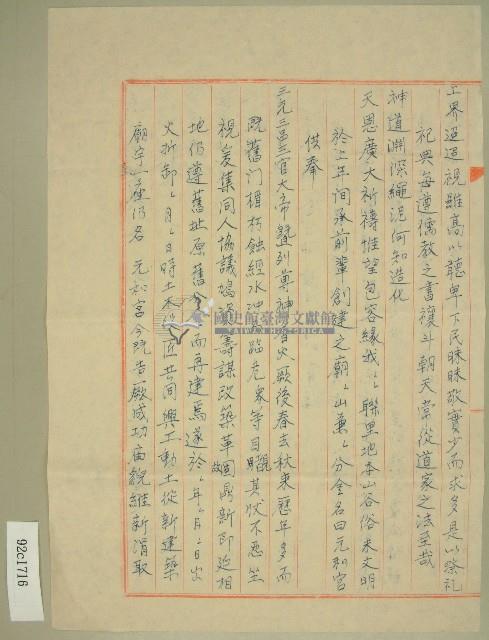 上界迢迢視雖高以聽卑下民昧昧敬實少而求多是以祭祀
祀典每遵儒教之書禳斗朝天當從道家之法至哉
神道淵深繩泥何知造化
天恩廣大祈禱惟望包容緣我ㄟㄟ聯里地本山谷俗未文明
於上年间承前輩創建之廟ㄟ山兼ㄟ分金名曰元和宮
供奉
三元三品三官大帝暨列尊神香火厥後春去秋来歷年多而
既舊门楣朽蝕經水沖 臨危衆等目覩其狀不忍坐
視爰集同人協議鳩資籌謀改築革故鼎新即迎相
地仍遵舊址原舊 而再建焉遂於ㄟ年ㄟ月ㄟ日出
火折卸ㄟ月ㄟ日時土木 匠共同興工動土從新建築
廟宇一座仍名 元和宮今既告厥成功庙貌維新涓取
國史館臺灣文獻館
TAIWAN HISTORICA
92c1716